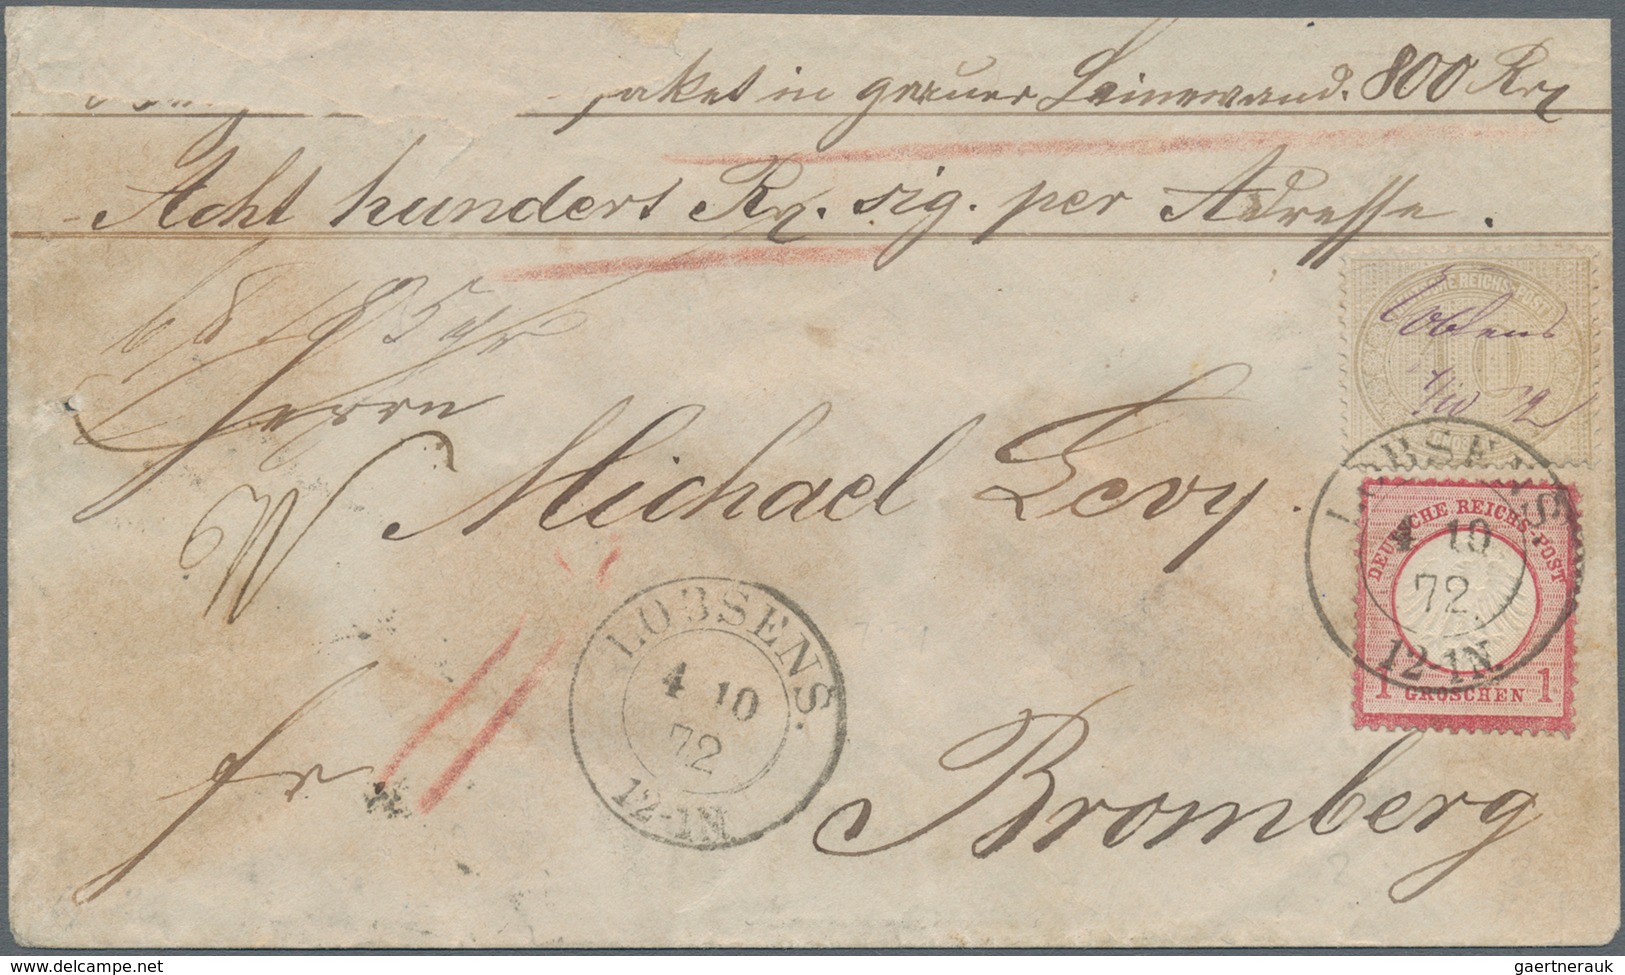 paket in grauer Leinewand. 800 Rx
Acht hunderd Rx. sig. per Adresse.
Herrn
Michael Levy.
fr
Bromberg
LOBSENS.
4 10
72
12-1N
DEUTSCHE REICHS-POST
10
Lobsens
4/10 72
LOBSENS
4 10
72
12-1N.
DEUTSCHE REICHS-POST
1 GROSCHEN 1
delcampe.net
gaertnerauk